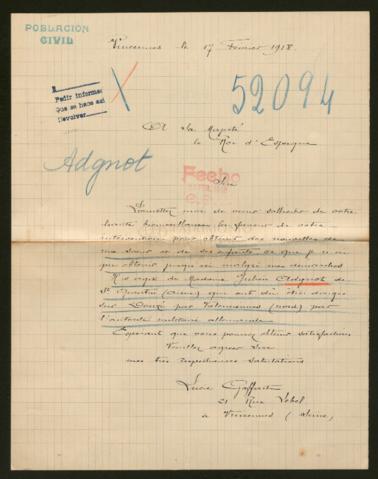 POBLACION
CIVIL
Vincennes le 17 Fevrier 1918.
Pedir informes
Que se hace asi
Devolver
52094
A Sa Majesté
le Roi d'Espagne
Adgnot
Fecho
Sire
Permettez moi de venir solliciter de votre
haute bienveillance la faveur de votre
intervention pour obtenir des nouvelles de
ma soeur et de ses enfants, ce que je n'ai
pu obtenir jusqu'ici malgré mes démarches
Il s'agit de Madame Julien Adgnot de
St Quentin (Aisne) qui ont dû être évacués
sur Denain par Valenciennes (nord) par
l'autorité militaire allemande.
Espérant que vous pourrez obtenir satisfaction
Veuillez agréer Sire
mes très respectueuses salutations
21 Rue
à Vincennes (Seine)